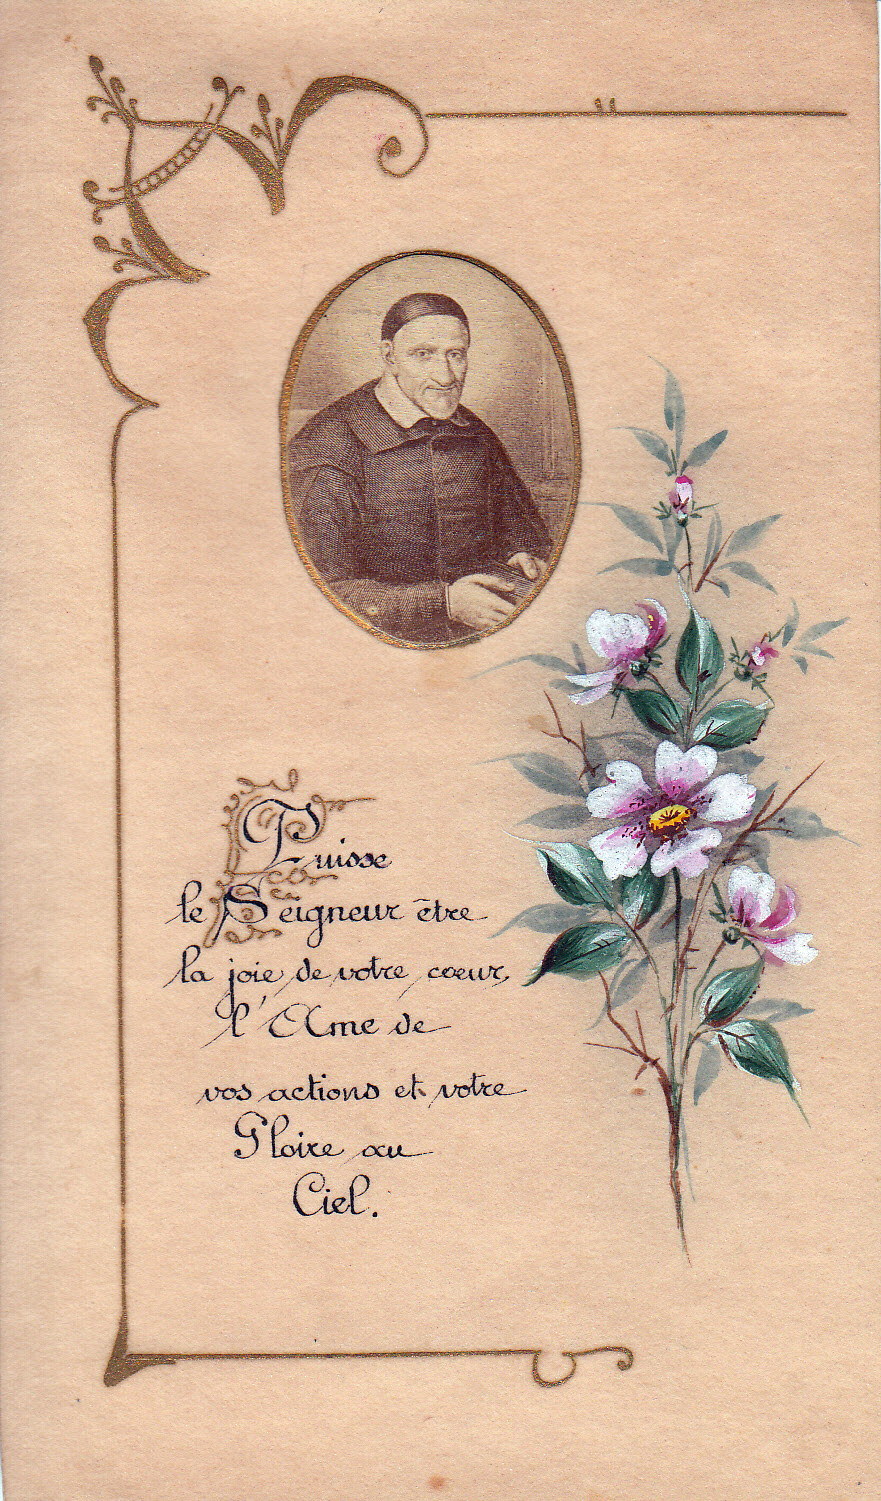 Puisse
le Seigneur être
la joie de votre coeur,
l'Ame de
vos actions et votre
Gloire au
Ciel.